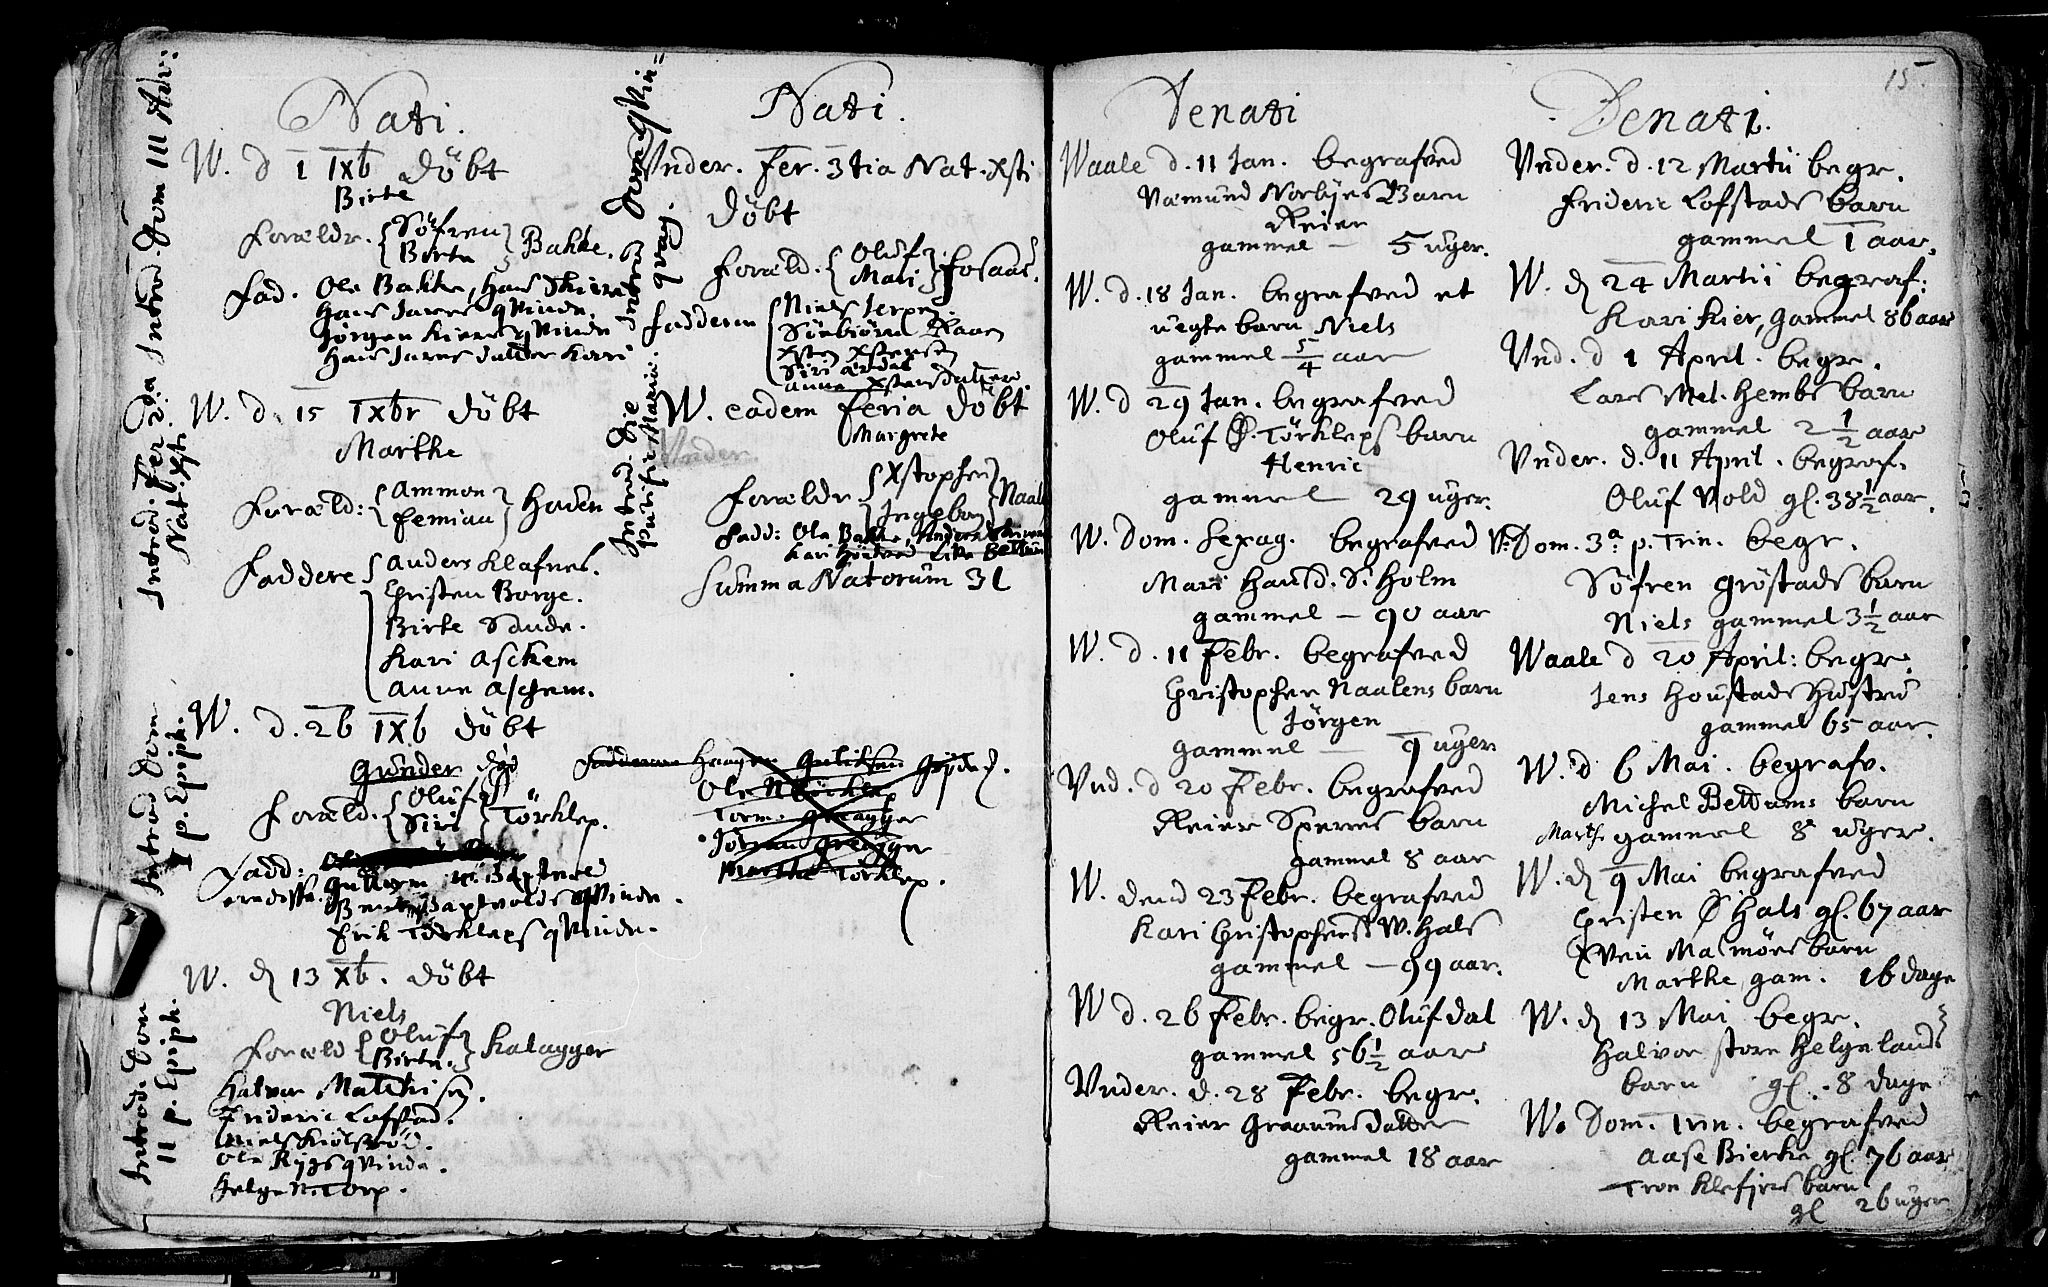 Nati.
W. d 1 IXb döbt
Birte
Forældr. Söfren
Birte Bakke.
Fad. Ole Bakke, Hans
Hans Jares qvinde.
Jörgen Kieres qvinde
Hans Jares datter Kari
W. d. 15 IXbr döbt
Marthe
Foræld: Ammon
Femiau Haden
Faddere Anders Klafnes.
Christen Borge.
Birte Sande.
Kari Aschem
Anne Aschem.
W. d. 26 IXb döbt
Gunder död
Foræld. Oluf
Siri Törklep.
Fadd:
Guttorm
qvinde.
Erik Törkleps qvinde.
W. d 13 Xb. döbt
Niels
Foræld Oluf
Birte. Kalagger
Halvor Mathisen.
Frideric Lofstad.
Niels Kiölsröd.
Ole Rygs qvinde.
Helge N. Torp.
Introd. Fer 2da
Nat. Xsti
Introd. Dom III Adv:
Introd Dom
I p. Epiph.
Introd. Dom
II p. Epiph.
Nati.
Vnder. Fer. 3tia Nat. Xsti
döbt
Foræld. Oluf
Mari Fosaas.
Fadderne Niels Jerpen
Raaen
Xsten Xstensen
Siri
Anne Xstensdatter.
W. eadem feria döbt
Margrete
Vnder
Forældr Xstopher
Ingebor Naal
Fadd: Ole Bakke,
Kari Lisbe
Summa Natorum 31
Introd die
purific: Mariæ.
Introd Dom
qvag.
Fadderne Haagen Guliksen
Ole N Törklep
Torm. Graagger
Joran Graagger
Marthe Törklep.
Denati
Waale d. 11 Jan. begrafved
Væmund Norbyes Barn
Reier
gammel — 5 uger.
W. d. 18 Jan. begrafved et
uegte barn Niels
gammel 5/4 aar
W. d 29 Jan. begrafved
Oluf Ø. Törkleps barn
Henric
gammel 29 uger.
W. Dom. Sexag. begrafved
Mari Hausd. S. Holm
gammel — 90 aar
W. d. 11 Febr. begrafved
Christopher Naalens barn
Jörgen
gammel — 9 uger
Vnd. d 20 Febr. begrafved
Reier Sperres barn
gammel 8 aar
W. dend 23 Febr. begrafved
Kari Christophersd W. Hals
gammel — 99 aar.
W d. 26 Febr. begr. Oluf dal
gammel 56 1/2 aar
Vnder. d. 28 Febr. begr.
Reier Graarus datter
gammel 18 aar
15.
Denati.
Vnder. d. 12 Martii begr.
Frideric Lofstads barn
gammel 1 aar.
W. d 24 Martii begraf:
Kari Kier, gammel 86 aar
Vnd. d 1 April. begr.
Lars Mel. Hembs barn
gammel 2 1/2 aar
Vnder. d. 11 April. begraf.
Oluf Vold gl. 38 1/2 aar.
V. Dom. 3a p. Trin. begr.
Söfren Gröstads barn
Niels gammel 3 1/2 aar
Waale d 20 April: begr.
Jens Houstads Hustru
gammel 65 aar.
W. d 6 Mai. begrafv.
Michel Bettums barn
Marth. gammel 8 uger.
W. d 9 Mai begrafved
Christen Ø Hals gl. 67 aar
Sven Masmörs barn
Marthe gam. 16 dage
W. d 13 Mai begr.
Halvor store Helgelands
barn gl. 8 dage
W. Dom. Trin. begrafved
Aase Bierke gl. 76 aar
Tron Klefjers barn
gl 26 uger